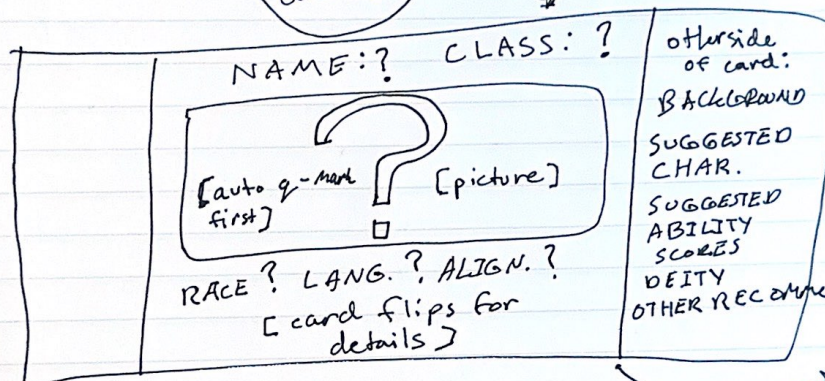 NAME:? CLASS: ?
?
[auto q-mark
first]
[picture]
RACE ? LANG. ? ALIGN. ?
[card flips for
details]
otherside
of card:
BACKGROUND
SUGGESTED
CHAR.
SUGGESTED
ABILITY
SCORES
DEITY
OTHER